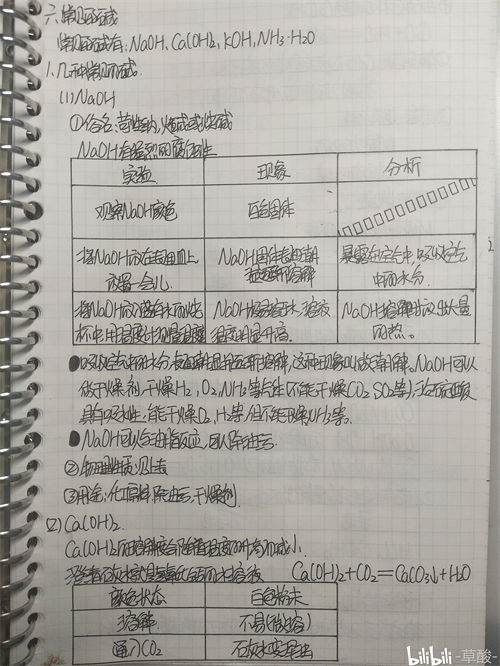 六.常见的碱
常见的碱有:NaOH, Ca(OH)2, KOH, NH3·H2O
1.几种常见的碱.
(1)NaOH
①俗名:苛性钠,火碱或烧碱
NaOH有强烈的腐蚀性
实验 现象 分析
观察NaOH颜色 白色固体
将NaOH放在表面皿上 NaOH固体表面潮 暴露在空气中,吸收空气
放置一会儿 湿逐渐溶解 中的水分.
将NaOH放入盛有水的烧 NaOH易溶于水,溶液 NaOH溶解时放出大量
杯中用温度计测量温度 温度明显升高. 的热。
●吸收空气中的水分,表面潮湿并逐渐溶解,这种现象叫做潮解,NaOH可以
做干燥剂,干燥H2, O2, NH3等气体,不能干燥CO2, SO2等),浓硫酸
具有吸水性,能干燥O2, H2等,但不能干燥NH3等。
●NaOH可以与油脂反应,可以除油污.
②物理性质:见上表
③用途:化工原料,除油污,干燥剂.
(2)Ca(OH)2.
Ca(OH)2的溶解度会随着温度的升高而减小.
澄清石灰水就是氢氧化钙的水溶液 Ca(OH)2+CO2=CaCO3↓+H2O
颜色状态 白色粉末
溶解 不易(微溶)
通入CO2 石灰水变浑浊
bilibili -草酸-